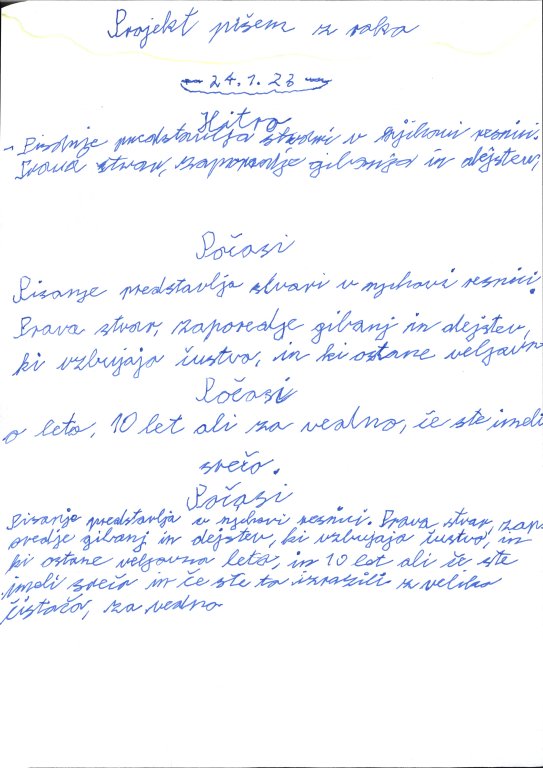 Projekt pišem z roko
24.1.23
Hitro
- Pisanje predstavlja stvari v njihovi resnici.
Prava stvar, zaporedje gibanja in dejstev,
Počasi
Pisanje predstavlja stvari v njihovi resnici.
Prava stvar, zaporedje gibanj in dejstev,
ki vzbujajo čustvo, in ki ostane veljavn
Počasi
o leto, 10 let ali za vedno, če ste imeli
srečo.
Počasi
Pisanje predstavlja v njihovi resnici. Prava stvar, zap
oredje gibanj in dejstev, ki vzbujajo čustvo, in
ki ostane veljavna leto, in 10 let ali če ste
imeli srečo in če ste to izrazili z veliko
čistočo, za vedno